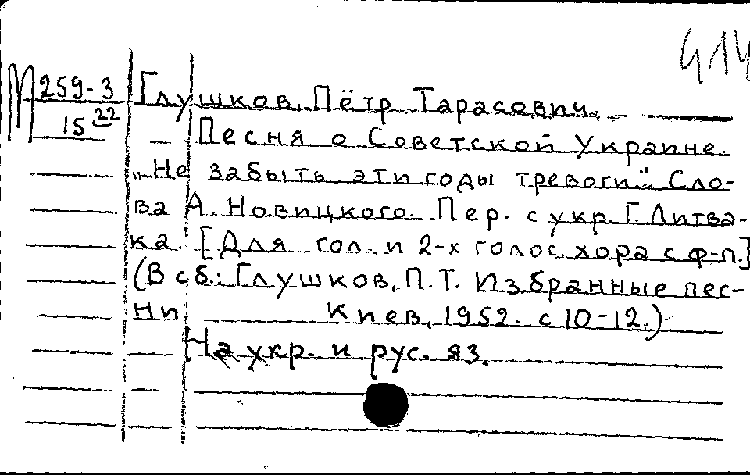 414
М 259-3
15 22
Глушков, Пётр Тарасович.
— Песня о Советской Украине.
„Не забыть эти годы тревоги". Сло-
ва А. Новицкого. Пер. с укр. Г. Литва-
ка. [Для гол. и 2-х голос. хора с ф-п.]
(В сб.: Глушков, П.Т. Избранные пес-
ни. Киев, 1952. с 10-12.)
На укр. и рус. яз.